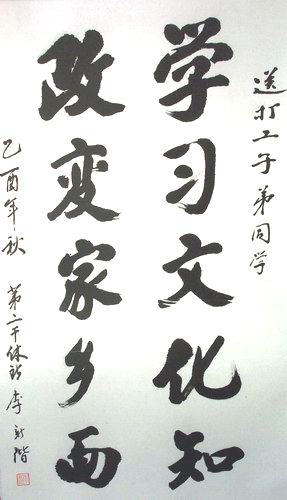 送打工子弟同学
学习文化知
改变家乡面
乙酉年秋 第二干休所 李新階